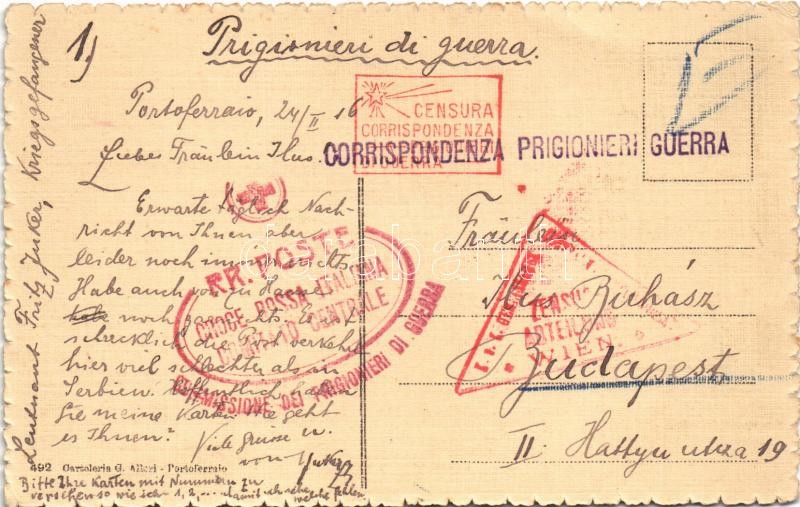 1)
Prigionieri di guerra.
Portoferraio, 24/II 16
Liebes Fräulein Ilus.
Erwarte täglich Nach-
richt von Ihnen aber
leider noch immer nichts.
Habe auch von zu Hause
noch gar nichts. Es ist
schrecklich die Post verkehrt
hier viel schlechter als in
Serbien. Hoffentlich haben
Sie meine Karten. Wie geht
es Ihnen?
Viele Grüsse u.
von
Leutnant Fritz Junker, Kriegsgefangener
492 Cartoleria G. Allori - Portoferraio
Bitte Ihre Karten mit Nummern zu
versehen so wie ich 1, 2, ... damit ich sehe welche fehlen
CENSURA
CORRISPONDENZA
GUERRA
CORRISPONDENZA PRIGIONIERI GUERRA
FR. POSTE
CROCE ROSSA ITALIANA
COMITATO CENTRALE
COMMISSIONE DEI PRIGIONIERI DI GUERRA
ZENSUR
ABTEILUNG
WIEN.
Fräulein
Ilus Buhász
Budapest
II. Hattyu utca 19
darabanth.com